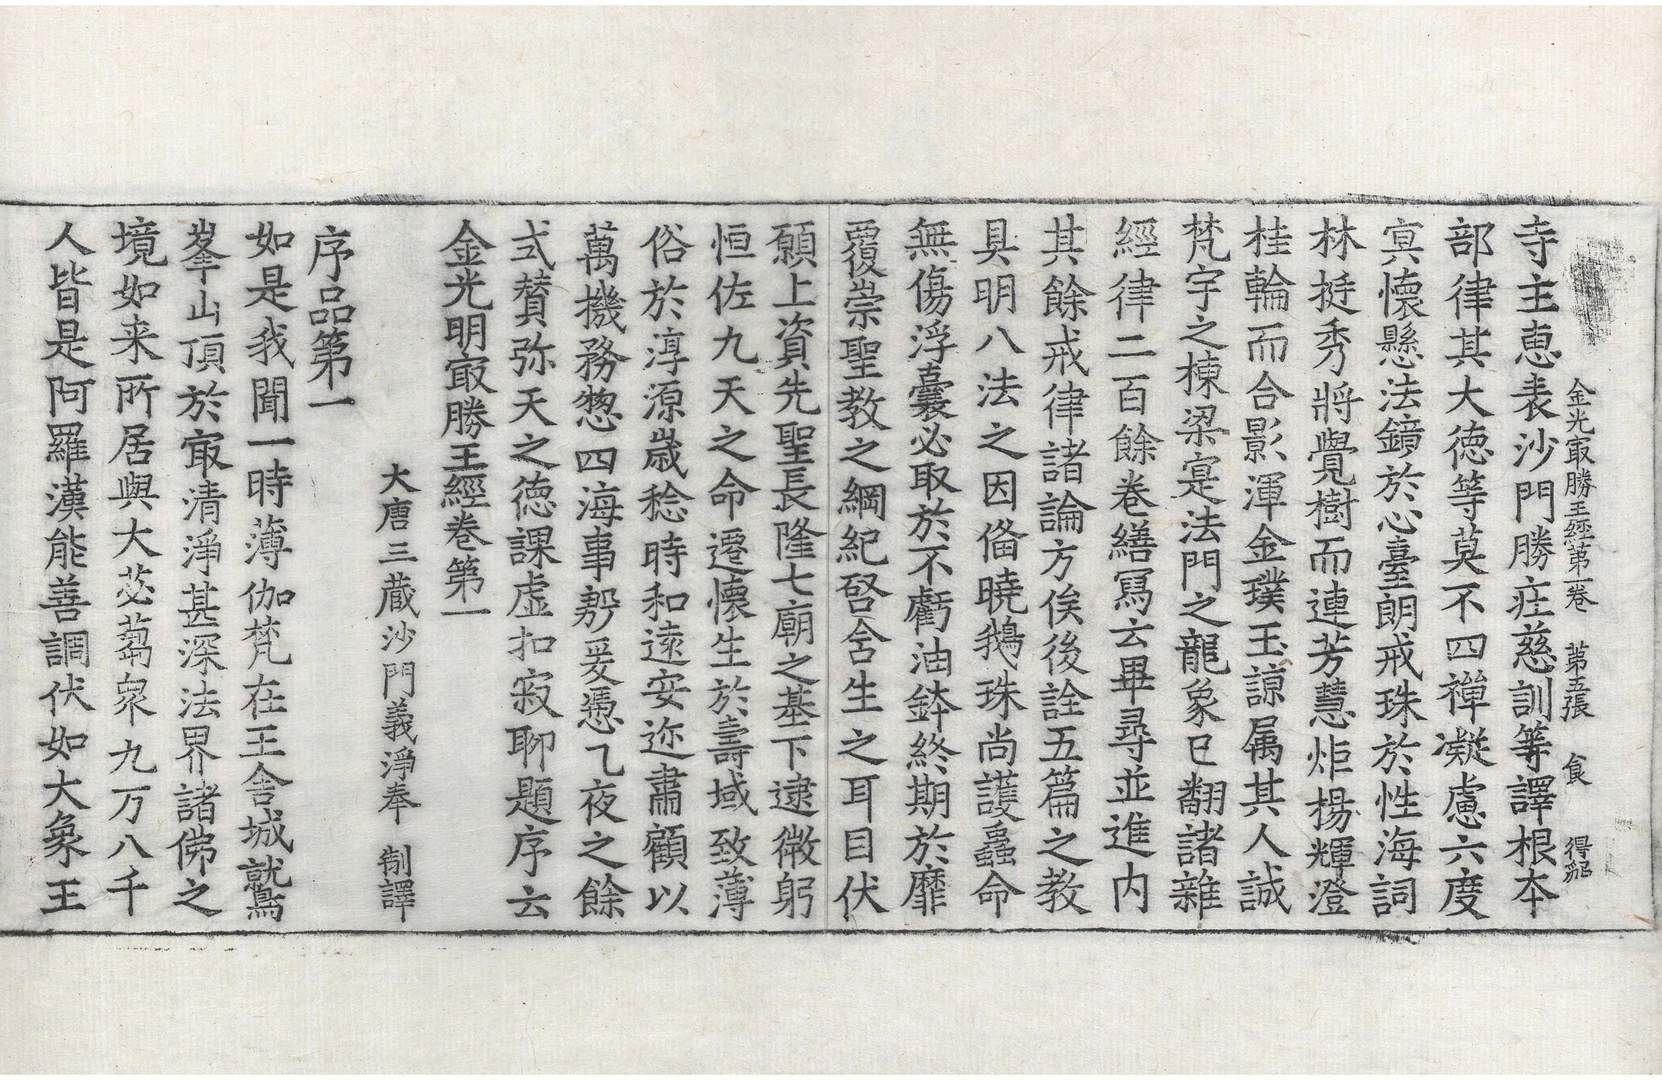 金光冣勝王經第一卷　第五張　食　得䛐
寺主惠表沙門勝莊慈訓等譯根本
部律其大德等莫不四禪凝慮六度
冥懷懸法鏡於心臺朗戒珠於性海詞
林挺秀將覺樹而連芳慧炬揚輝澄
桂輪而合影渾金璞玉諒属其人誠
梵宇之棟梁寔法門之龍象已翻諸雜
經律二百餘卷繕冩云畢尋並進内
其餘戒律諸論方俟後詮五篇之教
具明八法之因俻曉鵝珠尚護蟲命
無傷浮囊必取於不虧油鉢終期於靡
覆崇聖教之綱紀啓含生之耳目伏
願上資先聖長隆七廟之基下逮微躬
恒佐九天之命遷懷生於壽域致薄
俗於淳源歳稔時和遠安迩肅顧以
萬機務惣四海事殷爰憑乙夜之餘
式賛弥天之德課虛扣寂聊題序云
金光明冣勝王經卷第一
大唐三藏沙門義淨奉　制譯
序品第一
如是我聞一時薄伽梵在王舍城鷲
峯山頂於冣清淨甚深法界諸佛之
境如来所居與大苾蒭衆九万八千
人皆是阿羅漢能善調伏如大象王